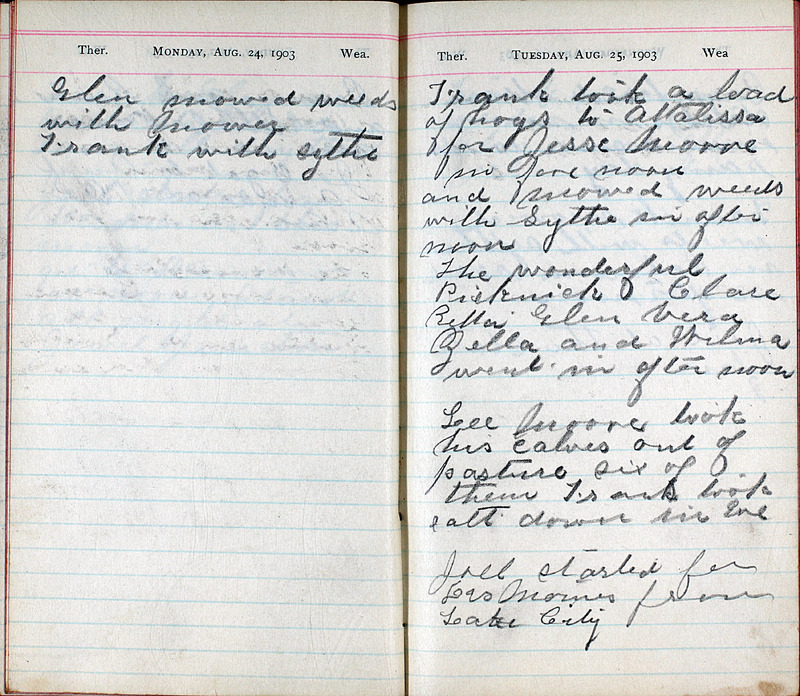 Ther. MONDAY, AUG. 24, 1903 Wea.
Glen mowed weeds
with mower
Frank with sythe
Ther. TUESDAY, AUG. 25, 1903 Wea
Frank took a load
of hogs to Attalissa
for Jesse Moore
in fore noon
and mowed weeds
with Sythe in after
noon
The wonderful
Picknick Clare
Retta Glen Vera
Zella and Wilma
went in after noon
Lee Moore took
his calves out of
pasture six of
them Frank took
catt down in Eve
Joel started for
Des Moines from
Lake City